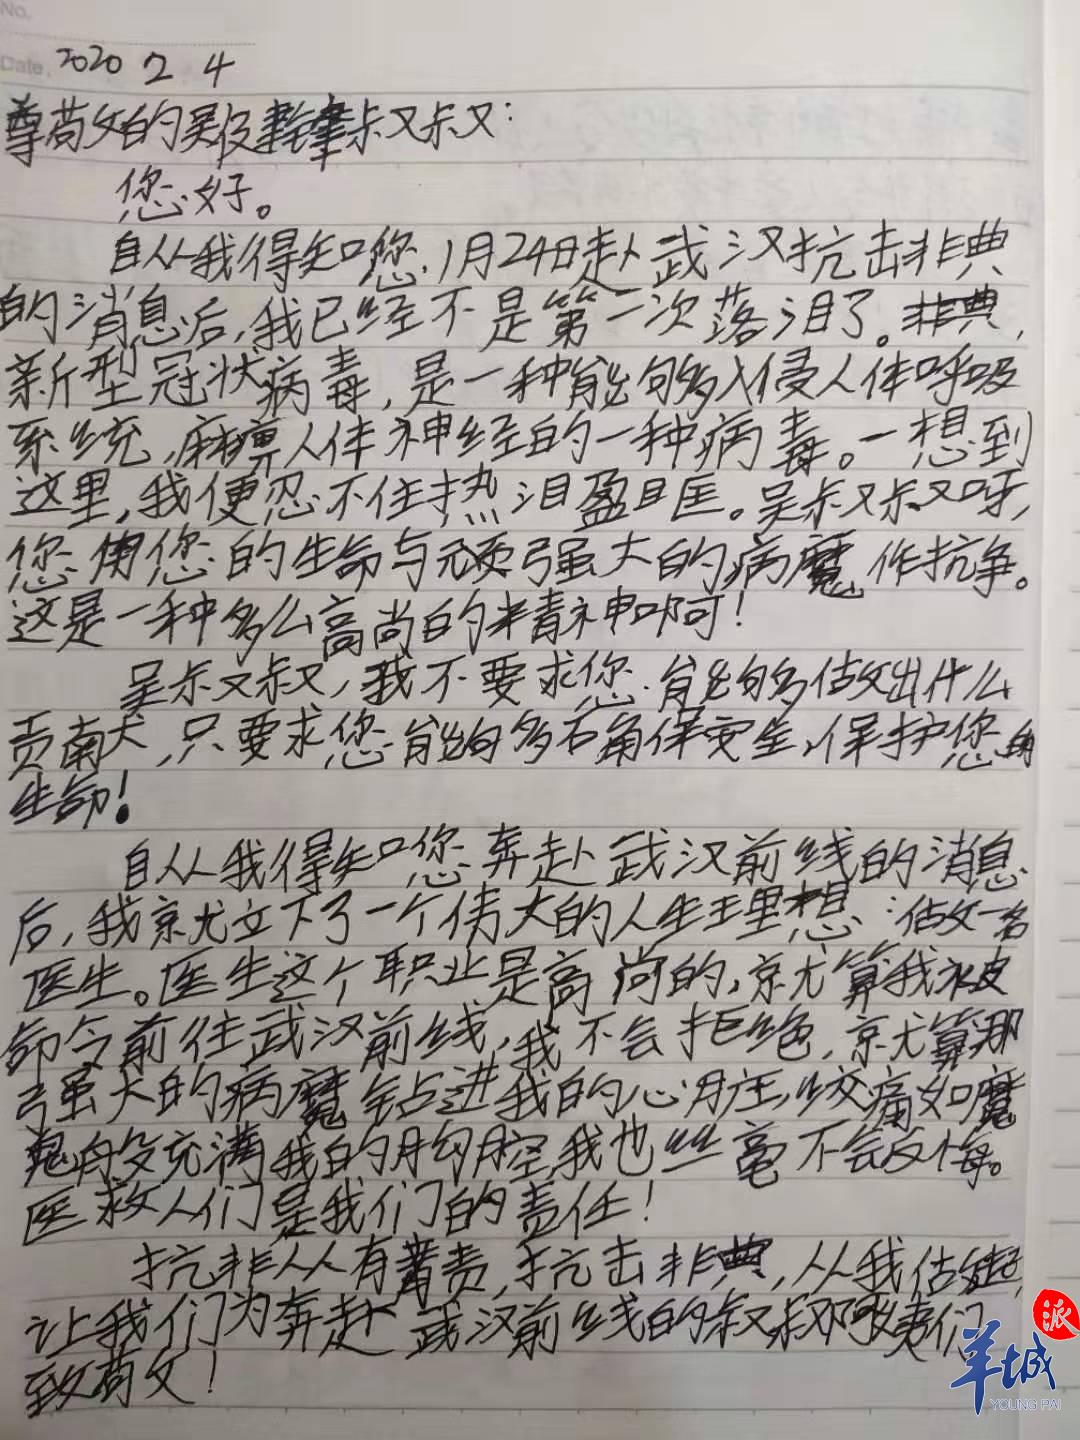 No.
Date. 2020 2 4
尊敬的吴俊锋叔叔：
您好。
自从我得知您1月24日赴武汉抗击非典
的消息后，我已经不是第一次落泪了。非典，
新型冠状病毒，是一种能够入侵人体呼吸
系统，麻痹人体神经的一种病毒。一想到
这里，我便忍不住热泪盈眶。吴叔叔呀，
您用您的生命与顽强大的病魔作抗争。
这是一种多么高尚的精神啊！
吴叔叔，我不要求您能够做出什么
贡献，只要求您能够确保安全，保护您的
生命！
自从我得知您奔赴武汉前线的消息
后，我就立下了一个伟大的人生理想：做一名
医生。医生这个职业是高尚的，就算我被
命令前往武汉前线，我不会拒绝，就算那
强大的病魔钻进我的心脏，绞痛如魔
鬼般充满我的胸腔，我也丝毫不会反悔。
医救人们是我们的责任！
抗非人人有责，抗击非典，从我做起，
让我们为奔赴武汉前线的叔叔阿姨们
致敬！
派
羊城
YOUNG PAI